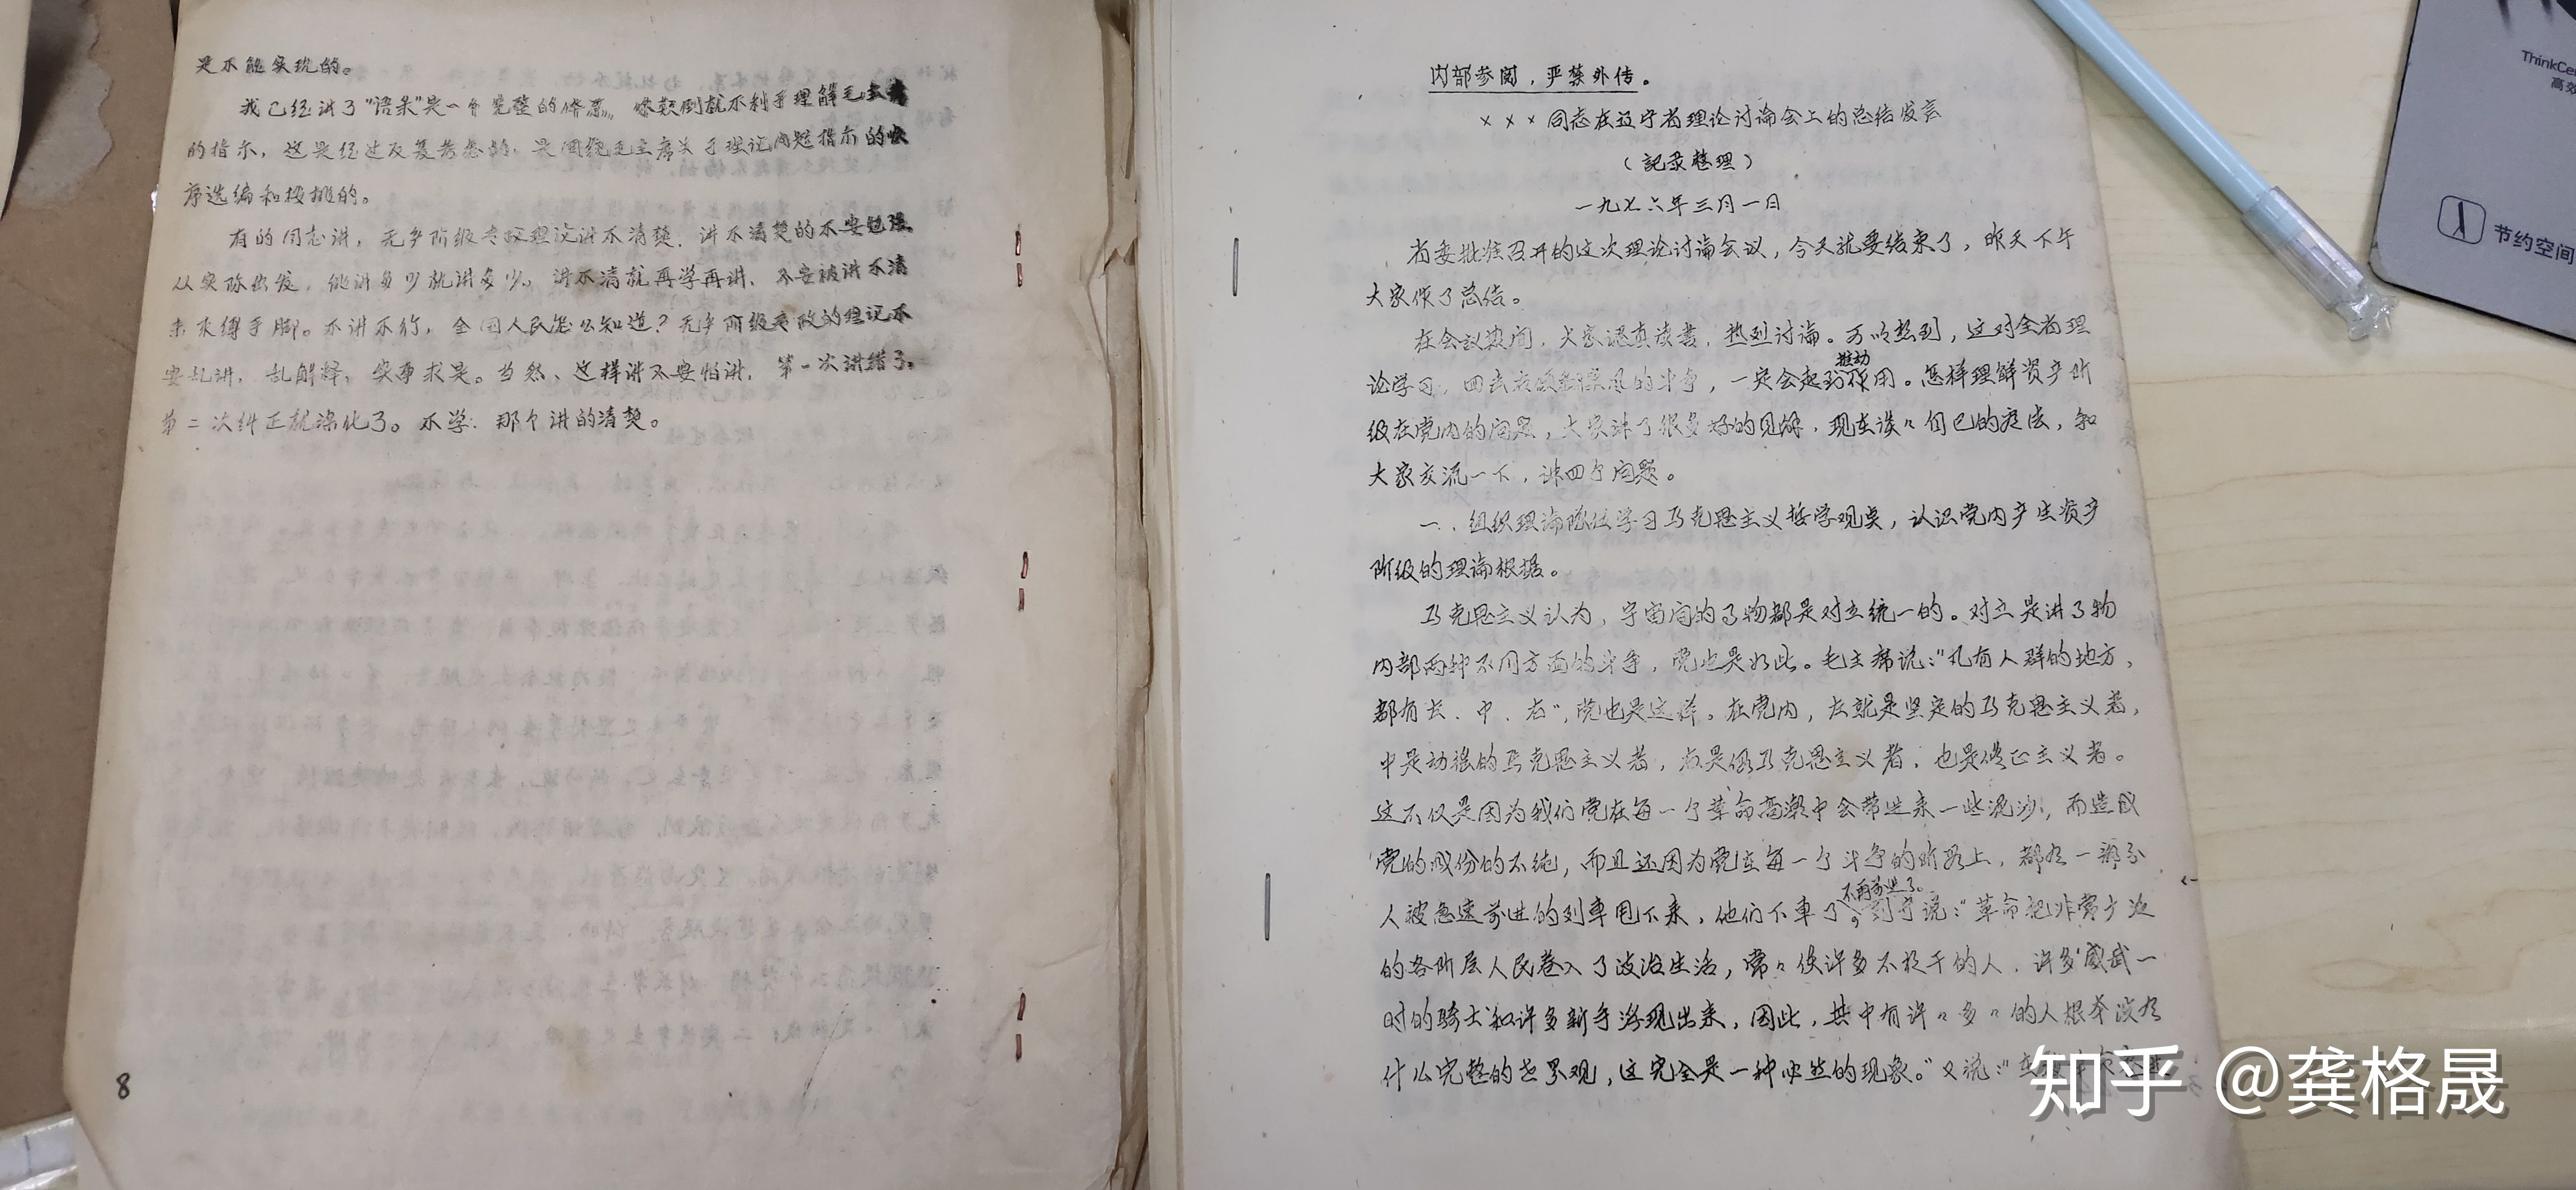 是不能实现的。
我已经讲了"语录"是一个完整的体系。 倒就不利于理解毛主席
的指示，这是经过反复考虑的，是围绕毛主席关于理论问题指示的
序选编和安排的。
有的同志讲，无产阶级专政理论讲不清楚，讲不清楚的不要勉强，
从实际出发，能讲多少就讲多少，讲不清就再学再讲，不要被讲不清
束缚手脚。不讲不行，全国人民怎么知道？无产阶级专政的理论不
要乱讲，乱解释，实事求是。当然、这样讲不要怕讲，第一次讲错了，
第二次纠正就深化了。不学，那个讲的清楚。
8
内部参阅，严禁外传。
×××同志在辽宁省理论讨论会上的总结发言
（記录整理）
一九七六年三月一日
省委批准召开的这次理论讨论会议，今天就要结束了，昨天下午
大家作了总结。
在会议期间，大家认真读书，热烈讨论。可以想到，这对全省理
论学习，回击右倾翻案风的斗争，一定会起到推动作用。怎样理解资产阶
级在党内的问题，大家讲了很多好的见解，现在谈々自己的想法，和
大家交流一下，讲四个问题。
一、组织理論队伍学习马克思主义哲学观点，认识党内产生资产
阶级的理論根据。
马克思主义认为，宇宙间的事物都是对立统一的。对立是讲事物
内部两种不同方面的斗争，党也是如此。毛主席说："凡有人群的地方，
都有左、中、右"，党也是这样。在党内，左就是坚定的马克思主义者，
中是动摇的马克思主义者，右是假马克思主义者，也是修正主义者。
这不仅是因为我们党在每一个革命高潮中会带进来一些泥沙，而造成
党的成份的不纯，而且还因为党在每一个斗争的阶段上，都有一部分
人被急速前进的列车甩下来，他们下车了，不再前进了。列宁说："革命把非常广泛
的各阶层人民卷入了政治生活，常々使许多不相干的人，许多'威武一
时的骑士'和许多新手浮现出来，因此，其中有许々多々的人根本没有
什么完整的世界观，这完全是一种必然的现象。"又说："
知乎 @龚格晟
ThinkCe
高效
节约空间